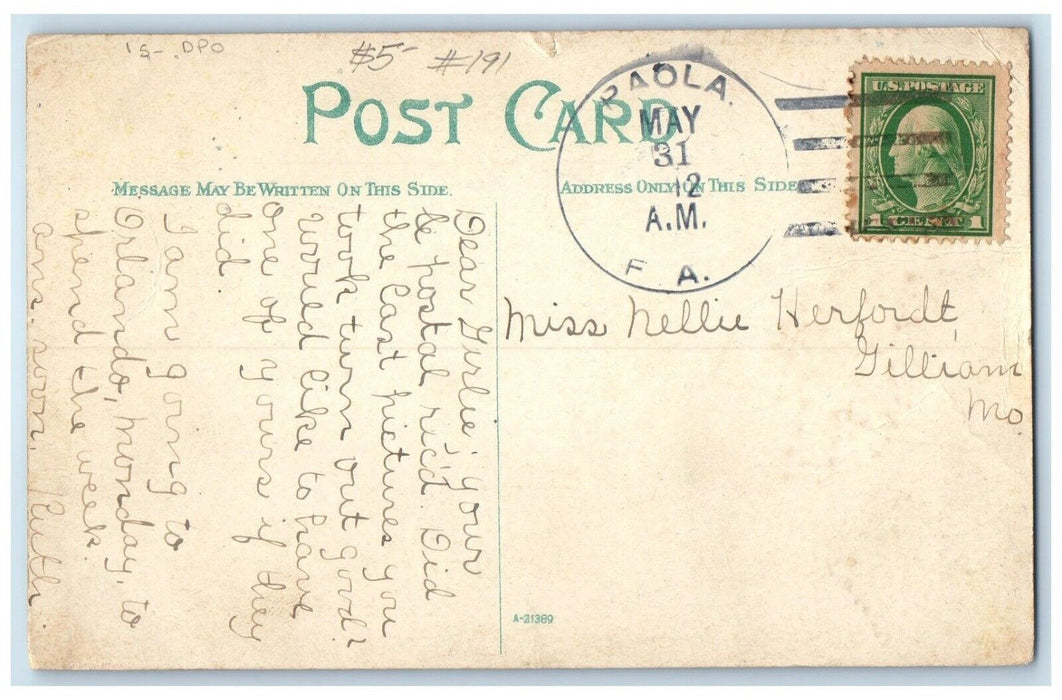 1s- DPO
$5- #191
POST CARD
MESSAGE MAY BE WRITTEN ON THIS SIDE.
ADDRESS ONLY ON THIS SIDE
PAOLA.
MAY
31
12
A.M.
F A.
U.S. POSTAGE
1 CENT 1
Dear Gurlie; your
postal rec'd. Did
the last pictures you
took turn out good?
Would like to have
one of yours if they
did.
I am going to
Orlando, Monday, to
spend the week.
ans. soon. Ruth
Miss Nellie Herfordt,
Gilliam
Mo
A-21369